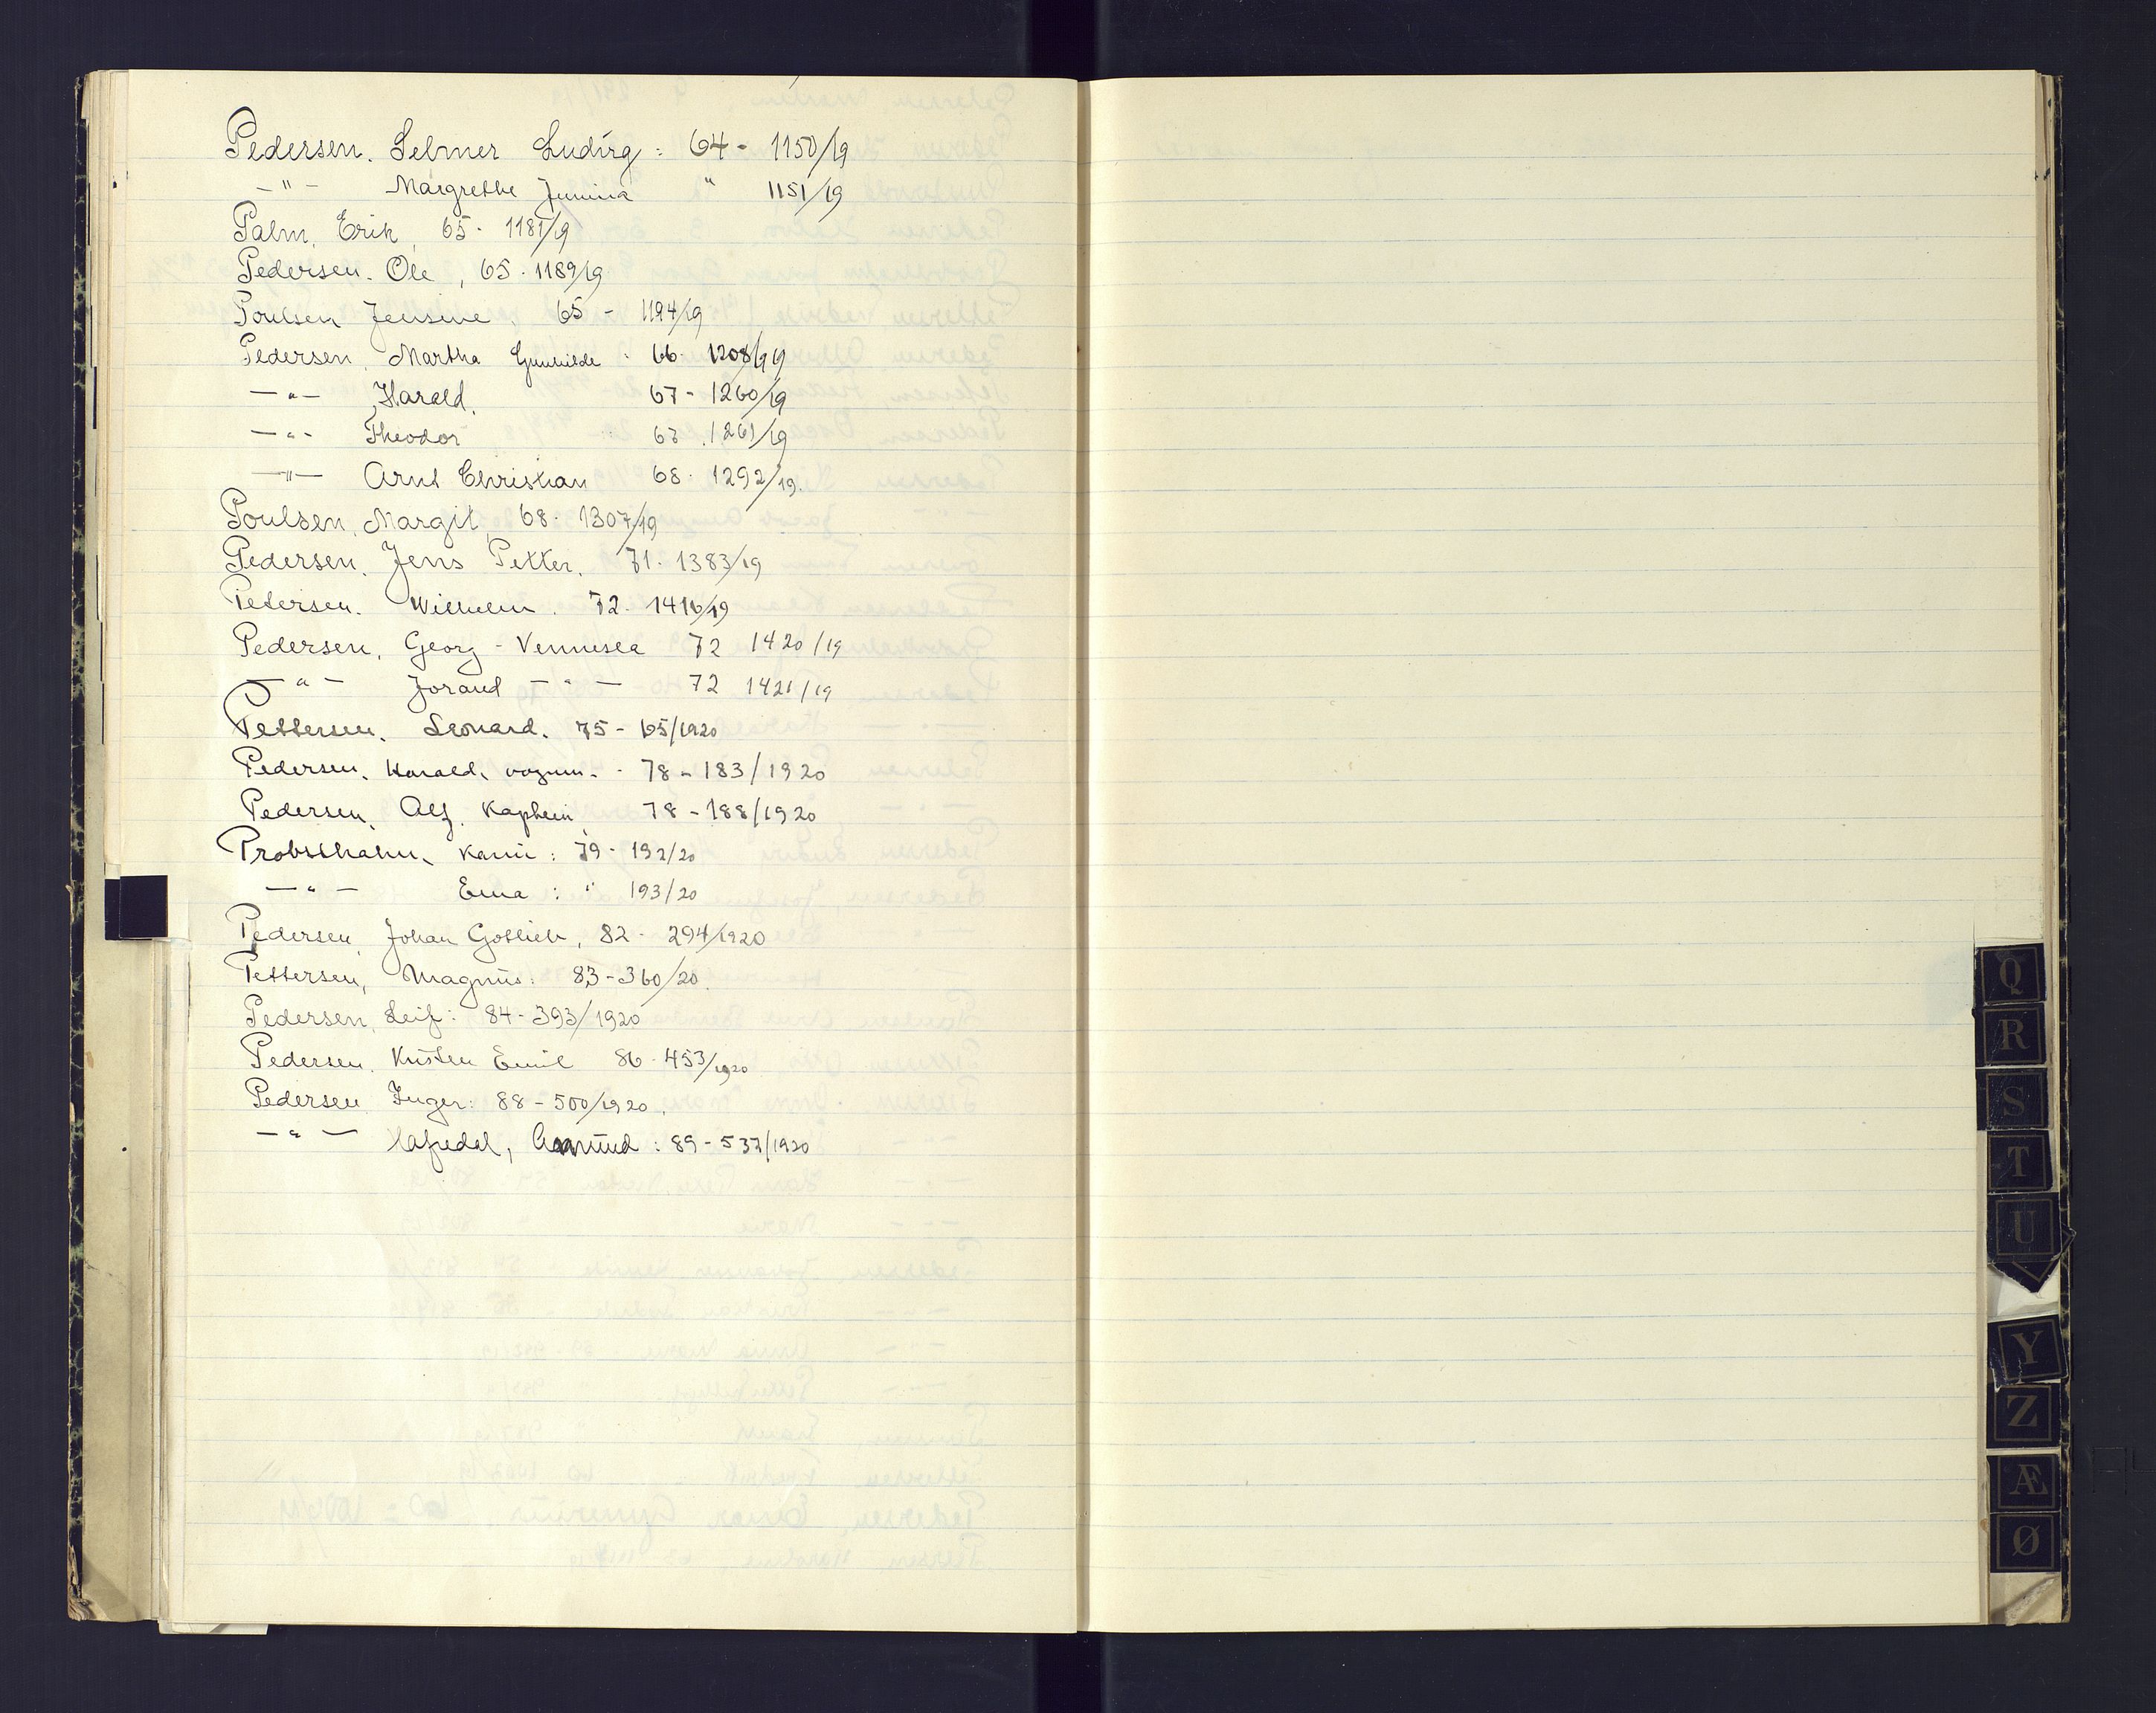 Pedersen. Selmer Ludvig: 64 - 1150/19
-"- Margrethe Junina " 1151/19
Palm, Erik, 65 - 1181/19
Pedersen. Ole, 65 - 1189/19
Poulsen Jensine. 65 - 1194/19
Pedersen, Martha Gunhilde : 66. 1208/19 19
-"- Harald. 67 - 1260/19
-"- Theodor 67. 1261/19
-"- Arnt Christian 68 - 1292/19.
Poulsen, Margit, 68 - 1307/19
Pedersen. Jens Petter. 71 - 1383/19
Pedersen. Wilhelm. 72 - 1416/19
Pedersen, Georg - Vennesla 72 1420/19
-"- Jorand -"- 72 1421/19
Pettersen. Leonard. 75 - 65/1920
Pedersen. Harald, vognm. - 78 - 183/1920
Pedersen, Alf. Kaptein, 78 - 188/1920
Probsthahn, Karin: 79 - 192/20
-"- Erna : " 193/20
Pedersen, Johan Gotlieb, 82 - 294/1920
Pettersen, Magnus: 83 - 360/20.
Pedersen, Leif: 84 - 393/1920
Pedersen. Kristen Emil 86 - 453/1920
Pedersen Inger: 88 - 500/1920.
-"- Hafredal, Aamund : 89 - 537/1920
Q
R
S
T
U
Y
Z
Æ
Ø